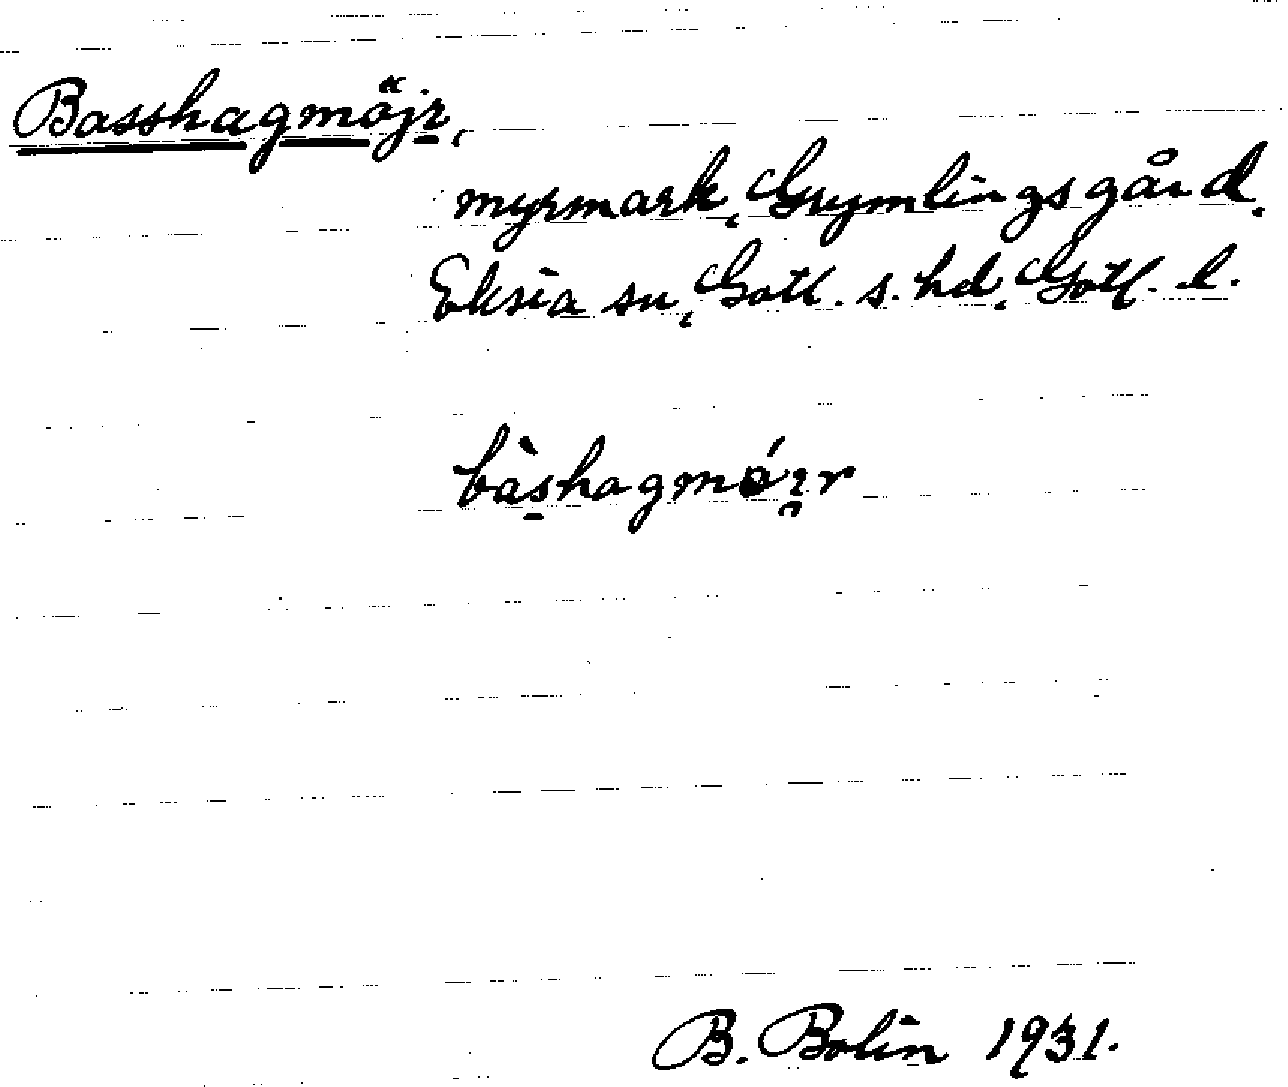 Basshagmöjr,
myrmark, Grymlingsgård,
Eksta sn, Gotl. s. hd, Gotl. l.
bàshagmǿɪ̯r
B. Bolin 1931.